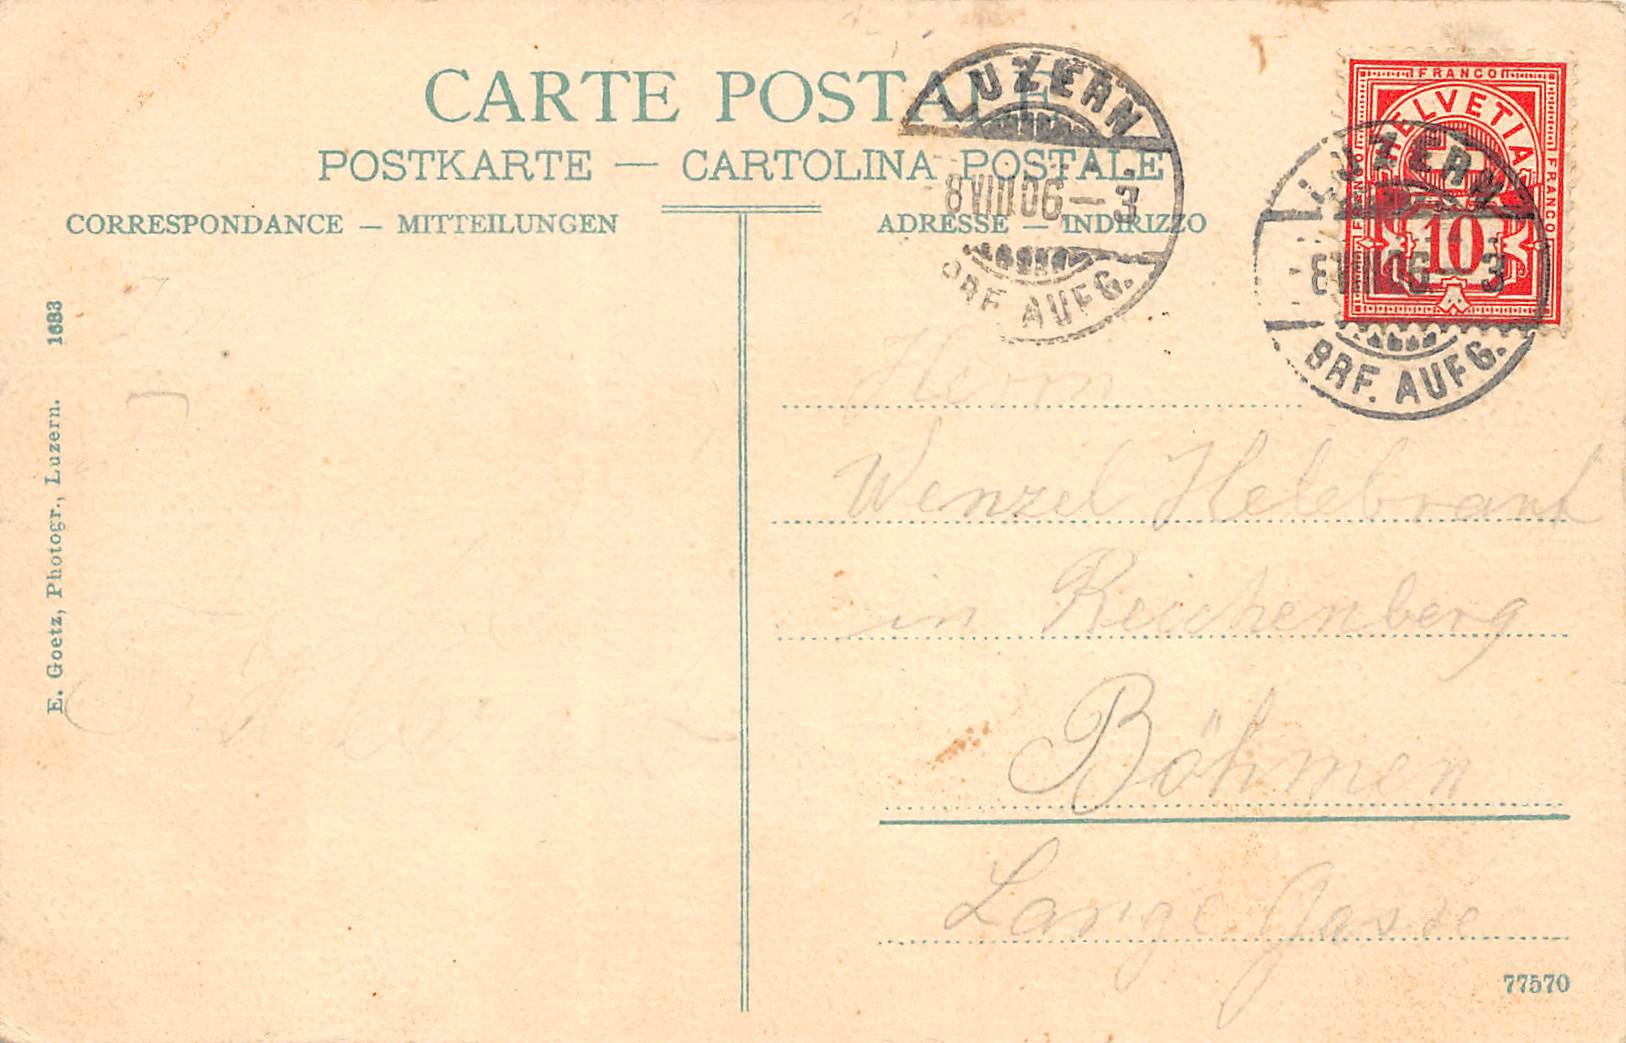 CARTE POSTALE
POSTKARTE — CARTOLINA POSTALE
CORRESPONDANCE — MITTEILUNGEN
ADRESSE — INDIRIZZO
LUZERN
8 VIII 06 — 3
BRF. AUFG.
FRANCO
HELVETIA
FRANCO
FRANCO
10
LUZERN
8 VIII 06 — 3
BRF. AUFG.
E. Goetz, Photogr., Luzern. 1683
Herrn
Wenzel Helebrant
in Reichenberg
Böhmen
Lange Gasse
77570